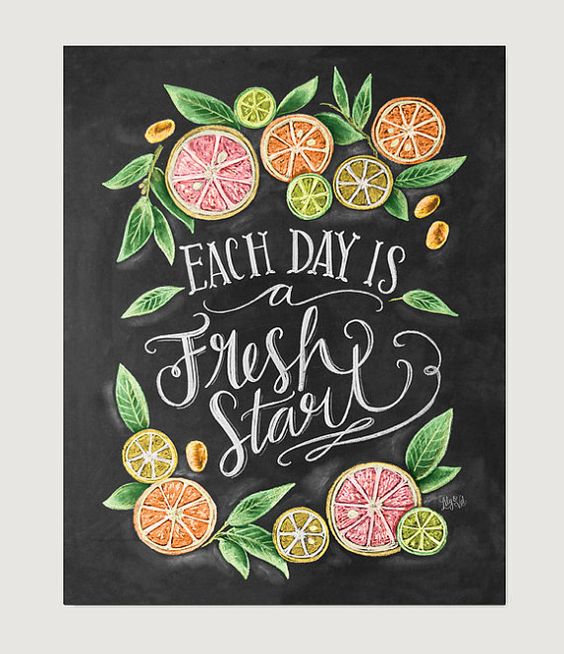 EACH DAY IS
a
Fresh
Start
Lily & Val